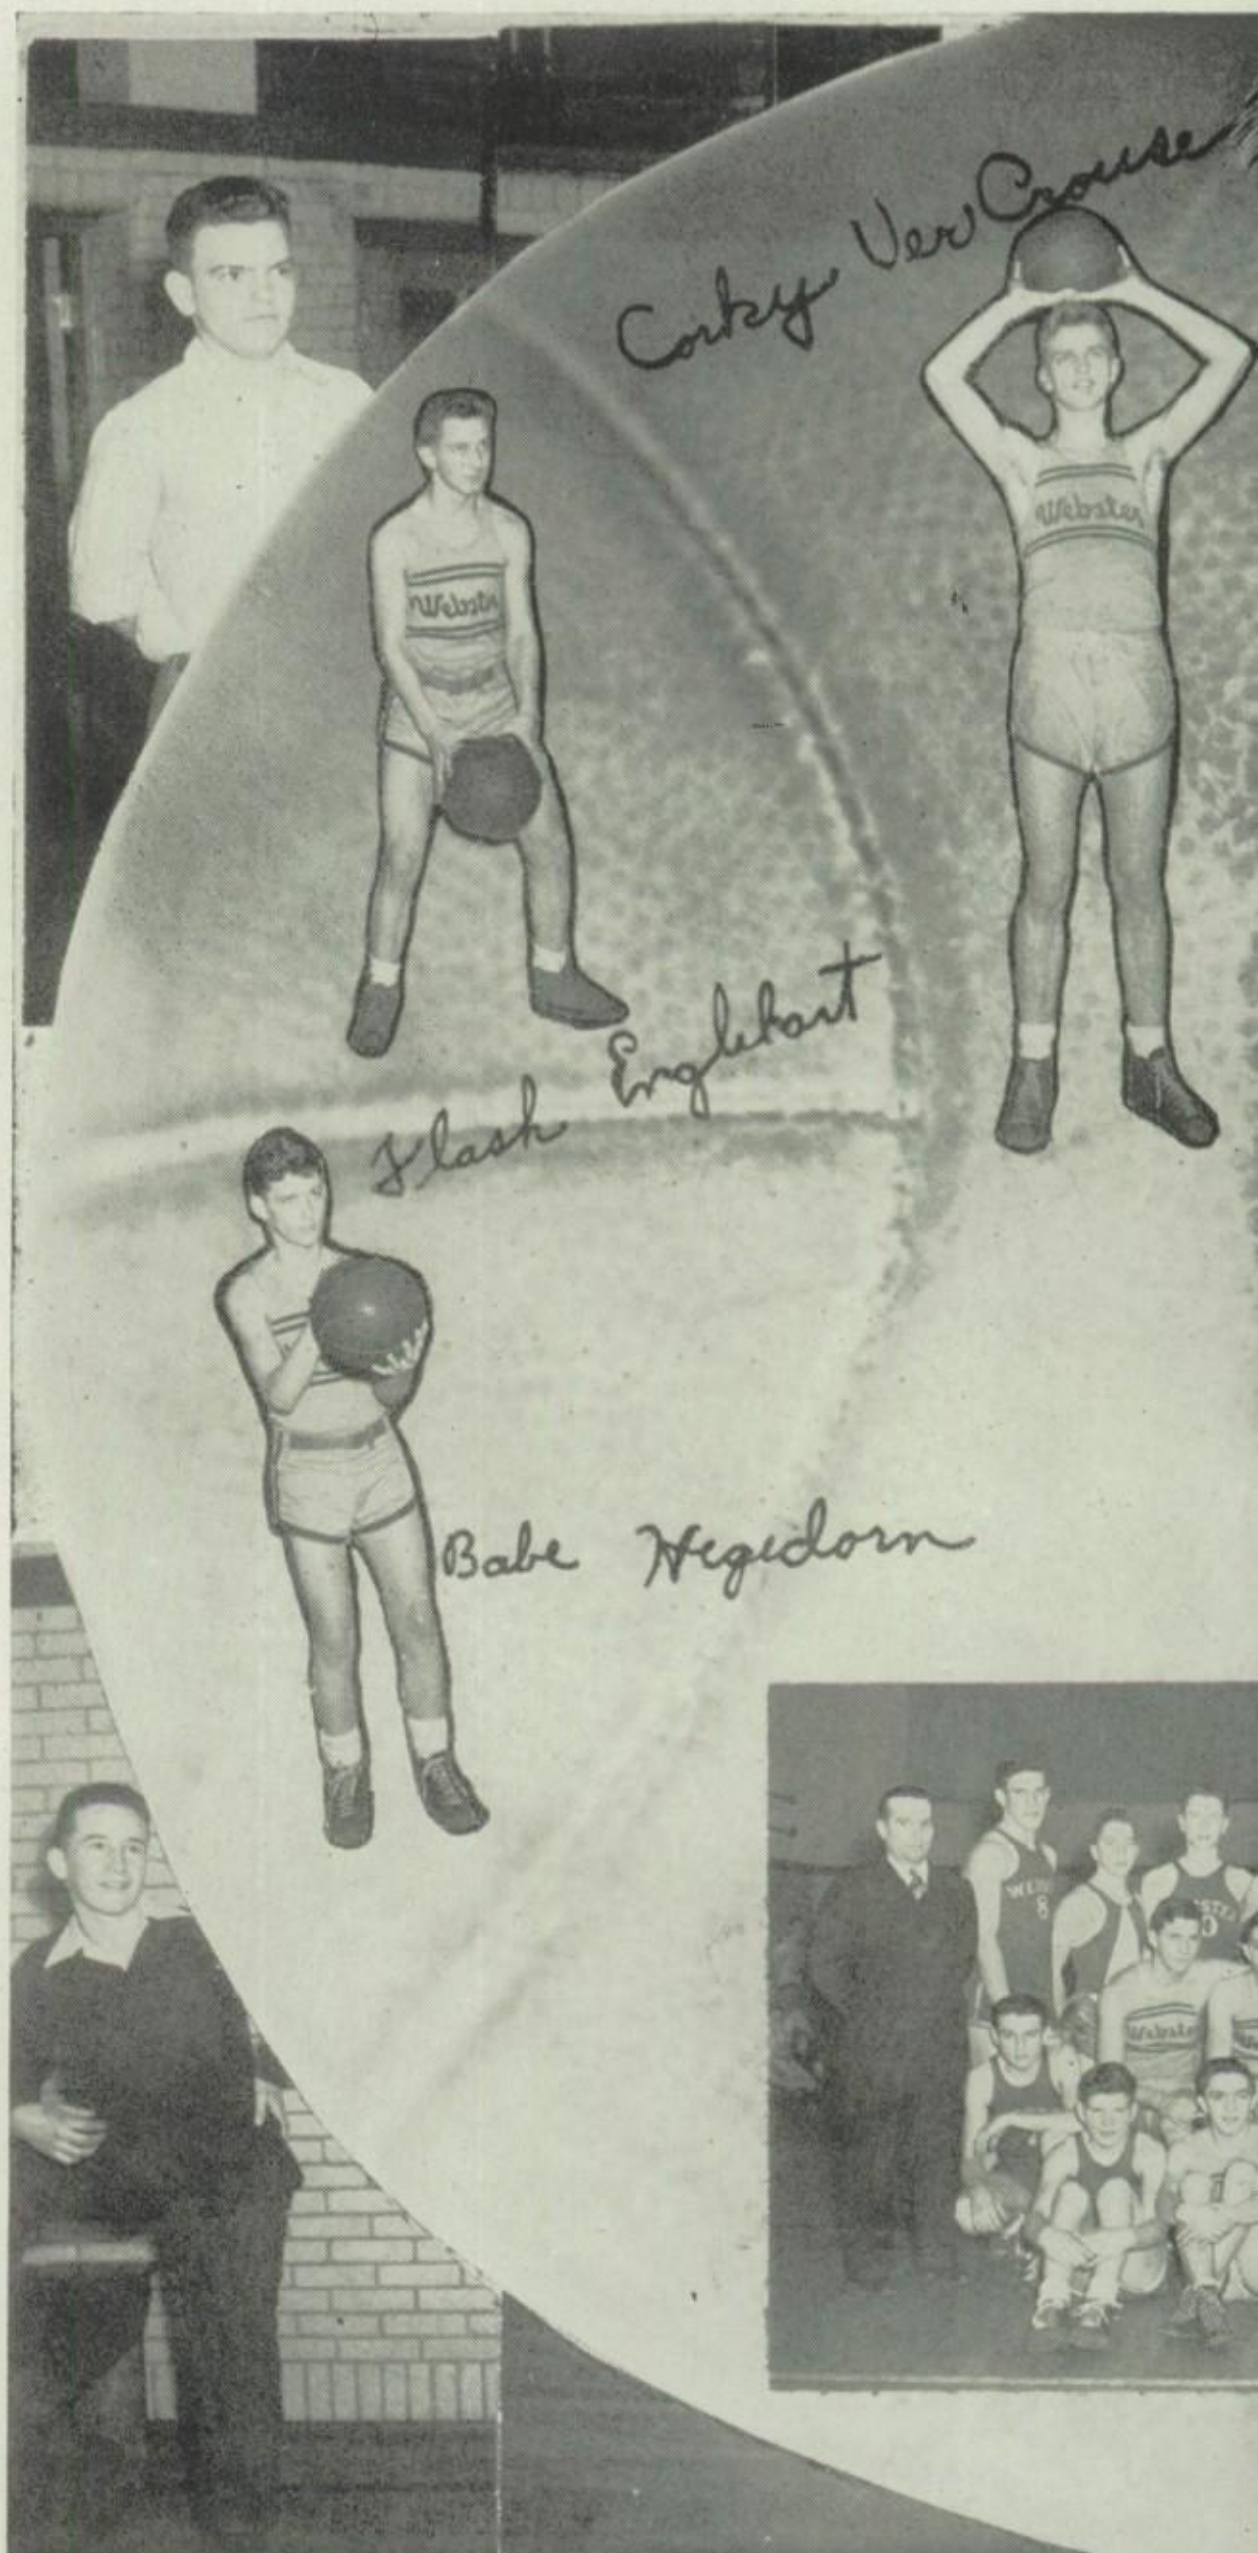 Corky Ver Crouse
Webster
Webste
Flash Englehart
Babe Hegedorn
WEB
8
STER
0
Webster